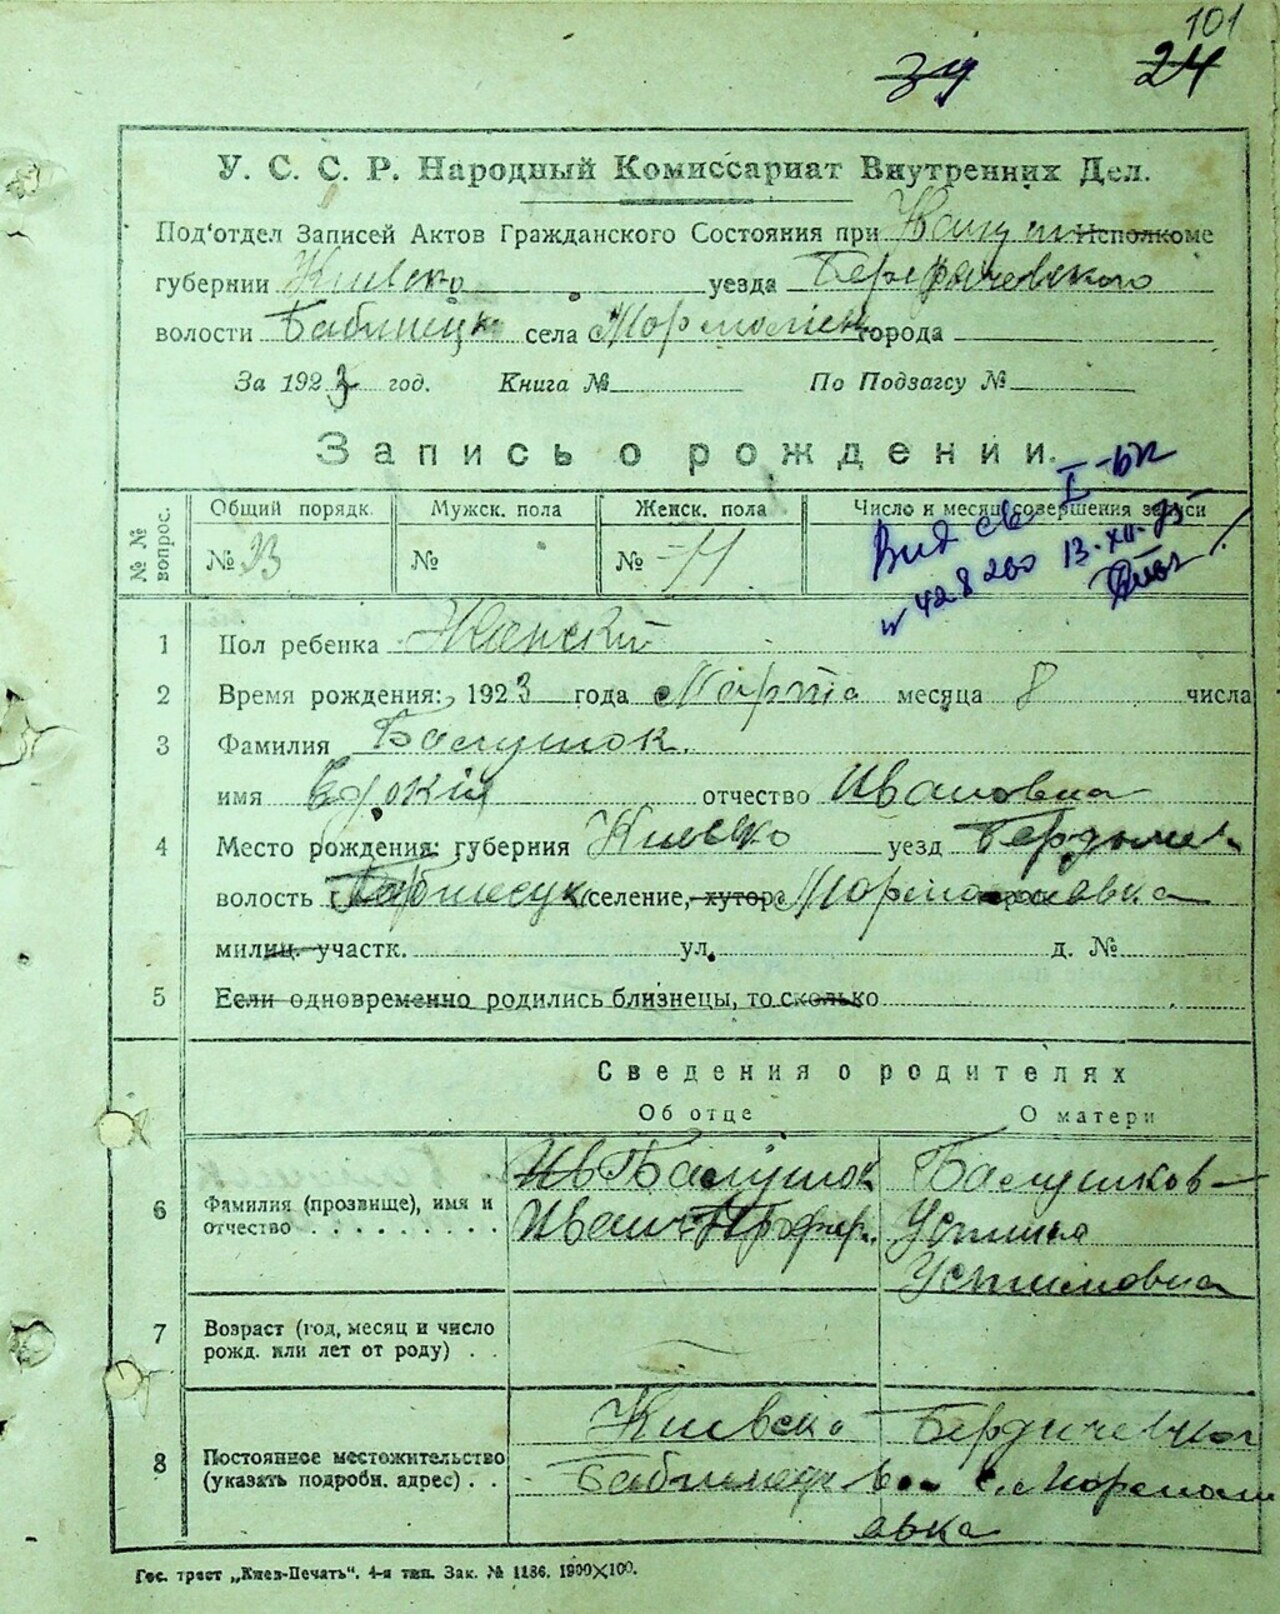 101
34 24
У. С. С. Р. Народный Комиссариат Внутренних Дел.
Под'отдел Записей Актов Гражданского Состояния при Исполкоме
губернии Киевско уезда Бердычевского
волости села города
За 1923 год. Книга № По Подзагсу №
Запись о рождении.
№ № вопрос. Общий порядк. Мужск. пола Женск. пола Число и месяц совершения записи
№ 33 № № 11
Вид св I-БК
№ 428260 13.XII.75
1 Пол ребенка Женский
2 Время рождения: 1923 года Марта месяца 8 числа
3 Фамилия Балушок.
имя Едокия отчество Ивановна
4 Место рождения: губерния Киевско уезд Бердычев-
волость селение, хутор
милиц. участк. ул. д. №
5 Если одновременно родились близнецы, то сколько
Сведения о родителях
Об отце О матери
6 Фамилия (прозвище), имя и отчество Ив Балушок Балушков-
Иван Устина
Устимовна
7 Возраст (год, месяц и число рожд. или лет от роду)
8 Постоянное местожительство (указать подробн. адрес) Киевско Бердичевског
с.
овка
Гос. трест „Киев-Печать“. 4-я тип. Зак. № 1186. 1900×100.